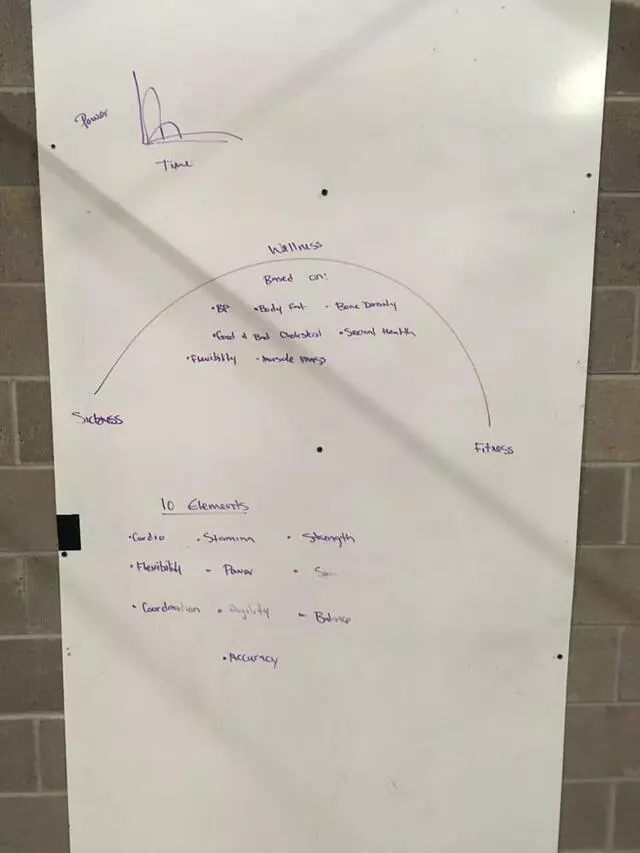 Power
Time
Wellness
Based on:
• BP • Body Fat - Bone Density
• Good & Bad Cholesterol • Sexual Health
• Flexibility - Muscle Mass
Sickness
Fitness
10 Elements
• Cardio • Stamina • Strength
• Flexibility - Power •
• Coordination • Agility - Balance
• Accuracy